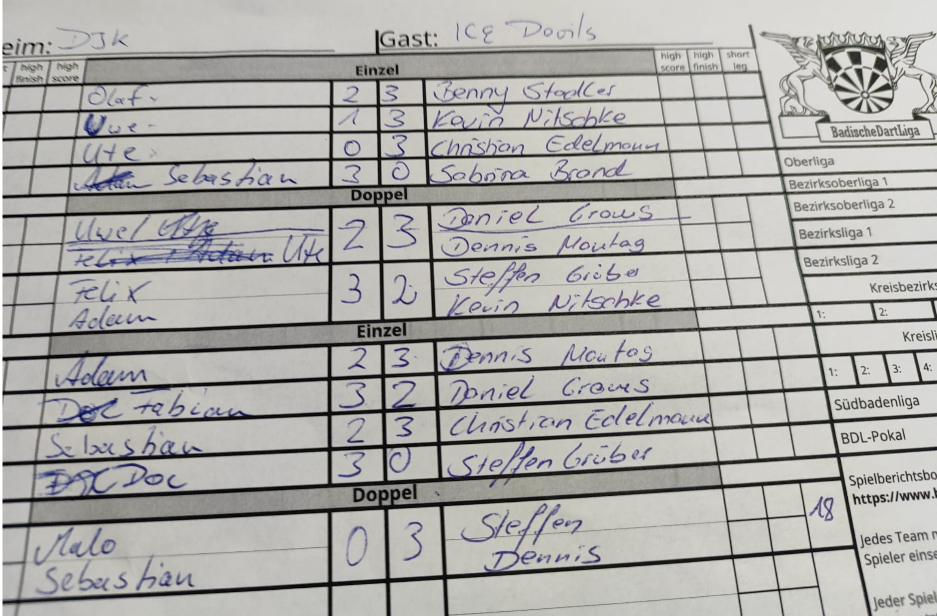 eim: DJK Gast: ICE Devils
high finish high score Einzel high score high finish short leg
Olaf 2 3 Benny Stadler
Uwe 1 3 Kevin Nitschke
Ute 0 3 Christian Edelmann
Sebastian 3 0 Sabrina Brand
Doppel
Uwe 2 3 Daniel Graws
Ute Dennis Montag
Felix 3 2 Steffen Grüber
Adam Kevin Nitschke
Einzel
Adam 2 3 Dennis Montag
Fabian 3 2 Daniel Graws
Sebastian 2 3 Christian Edelmann
Doc 3 0 Steffen Grüber
Doppel
Malo 0 3 Steffen 18
Sebastian Dennis
BadischeDartLiga
Oberliga
Bezirksoberliga 1
Bezirksoberliga 2
Bezirksliga 1
Bezirksliga 2
Kreisbezirks
1: 2:
Kreisli
1: 2: 3: 4:
Südbadenliga
BDL-Pokal
Spielberichtsbo
https://www.b
Jedes Team m
Spieler einse
Jeder Spiel